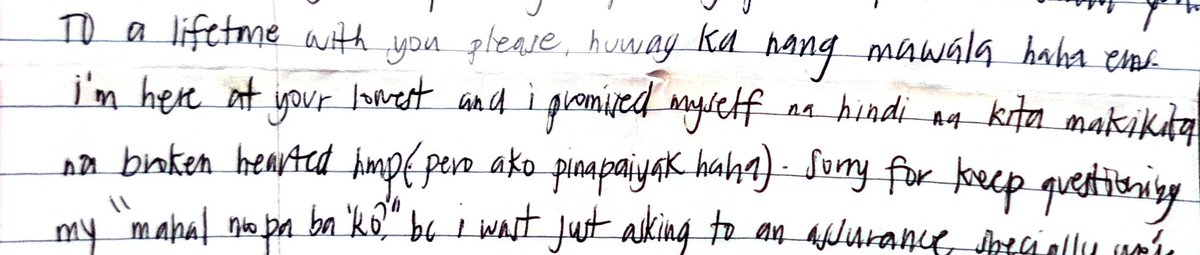 To a lifetme with you please, huwag ka nang mawala haha ems.
i'm here at your lowest and i promised myself na hindi na kita makikita
na broken hearted hmp (pero ako pinapaiyak haha). Sorry for keep questioning
my "mahal mo pa ba 'ko?" bc i wast just asking to an assurance, specially